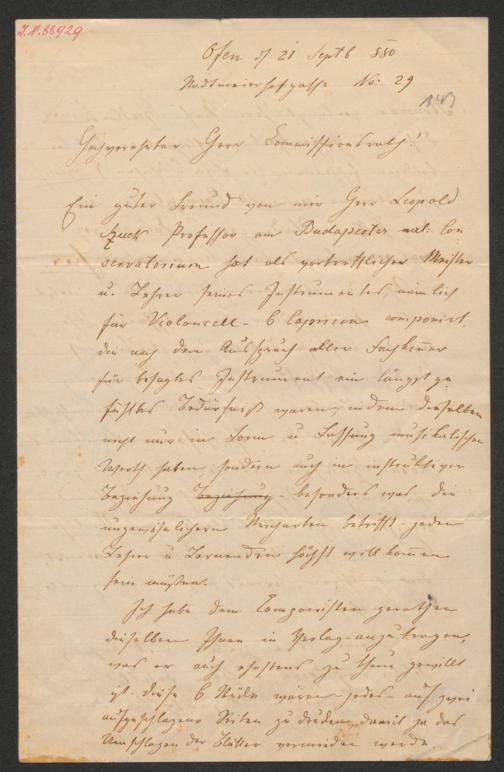 I.N. 68929
Ofen d 21 Septb 880
Stadtmeierhofgasse No: 29
Hochverehrter Herr Commissionsrath!
Ein guter Freund von mir Herr Leopold
Szuck Professor am Budapester nat: Con
servatorium hat als vortrefflicher Meister
u. Lehrer seines Instrumentes, nämlich
für Violoncell - 6 Capricen componirt,
die nach dem Ausspruch aller Fachkenner
für besagtes Instrument ein längst ge
fühltes Bedürfniß waren, indem dieselben
nicht nur in Form u Fassung musikalischen
Werth haben, sondern auch in instruktiver
Beziehung Beziehung - besonders was die
ungewöhnlichern Stricharten betrifft - jedem
Lehrer u Lernenden höchst willkommen
sein müßen.
Ich habe dem Componisten gerathen
dieselben Ihnen in Verlag anzutragen,
was er auch ehestens zu thun gewillt
ist. diese 6 Stücke wären jedes auf zwei
aufgeschlagene Seiten zu drucken, damit ja das
Umschlagen der Blätter vermieden werde.